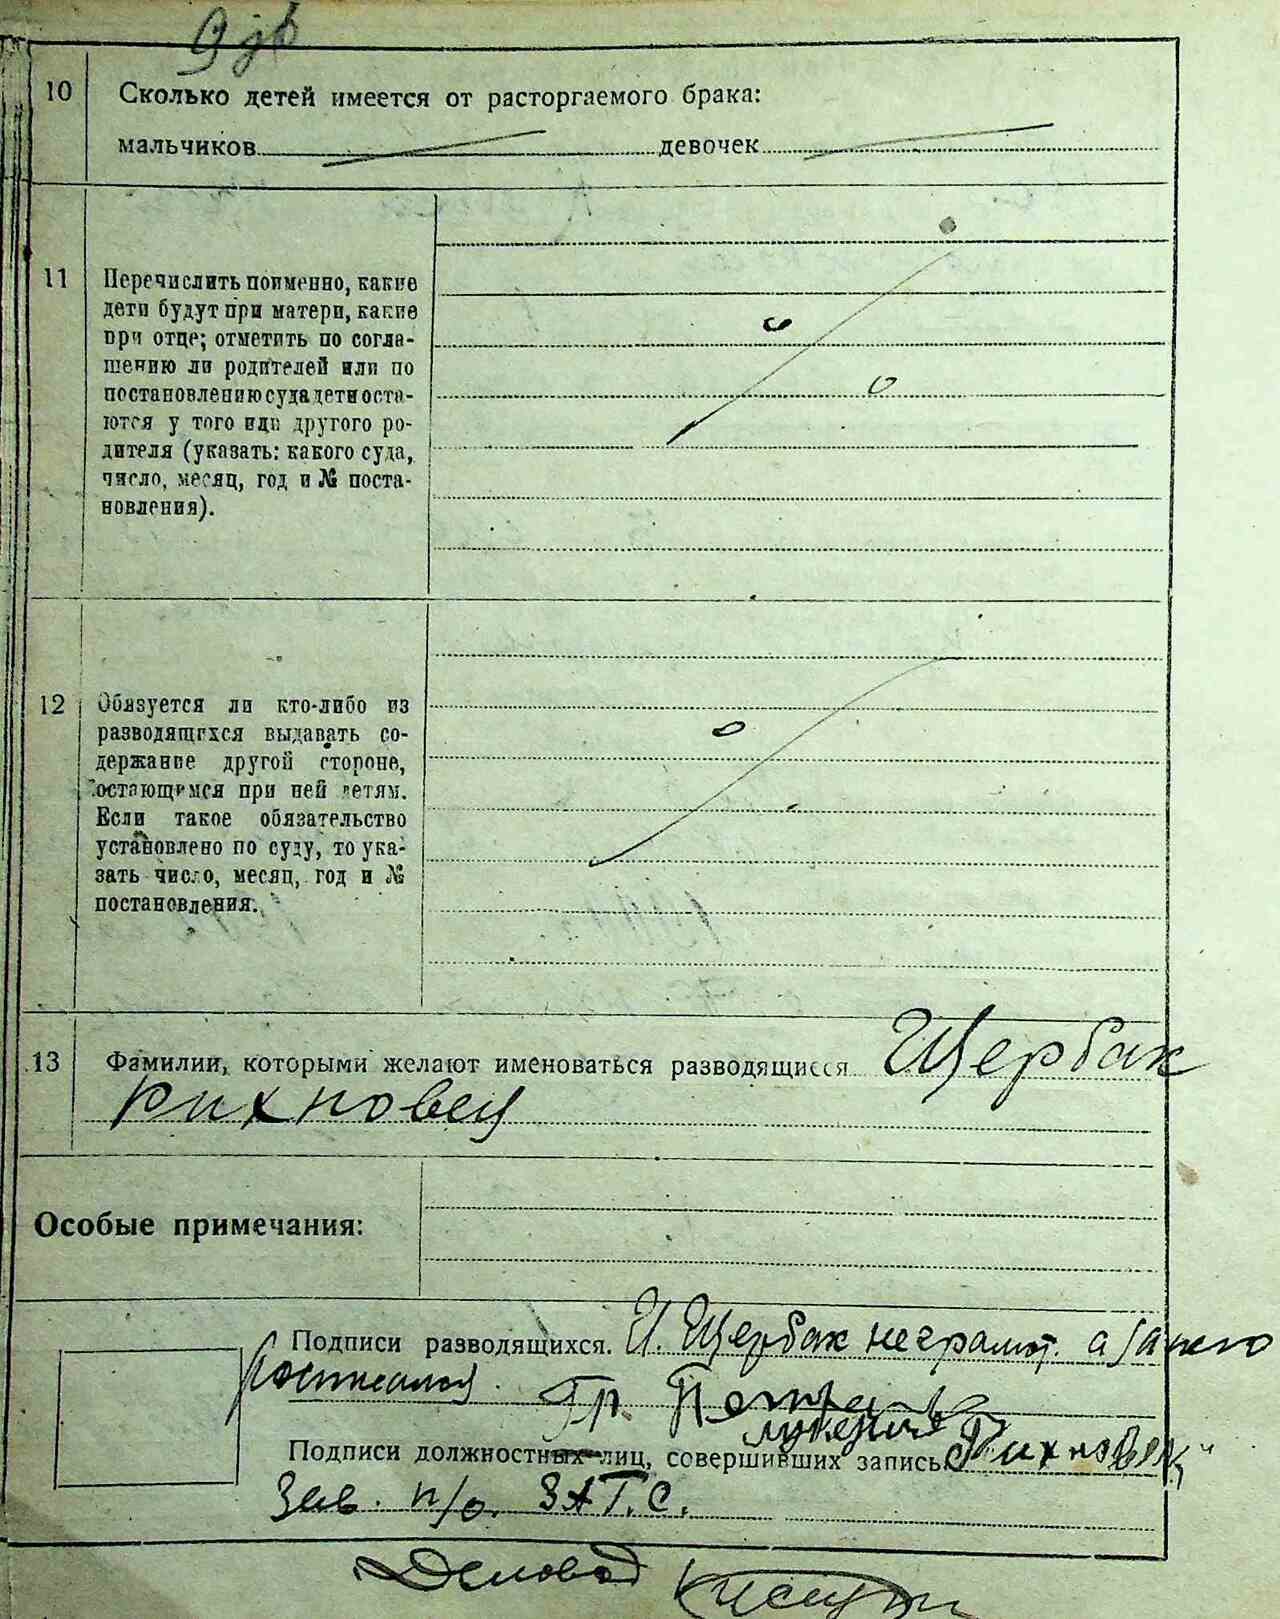 10 Сколько детей имеется от расторгаемого брака:
мальчиков девочек
11 Перечислить поименно, какие
дети будут при матери, какие
при отце; отметить по согла-
шению ли родителей или по
постановлению суда дети оста-
ются у того иди другого ро-
дителя (указать: какого суда,
число, месяц, год и № поста-
новления).
12 Обязуется ли кто-либо из
разводящихся выдавать со-
держание другой стороне,
остающимся при ней детям.
Если такое обязательство
установлено по суду, то ука-
зать число, месяц, год и №
постановления.
13 Фамилии, которыми желают именоваться разводящиеся Щербак
Пихновец
Особые примечания:
Подписи разводящихся. И. Щербак неграмот. а за него
Росписался. Гр.
Подписи должностных лиц, совершивших запись Пихновец
Зав. п/о. ЗАГ.С.